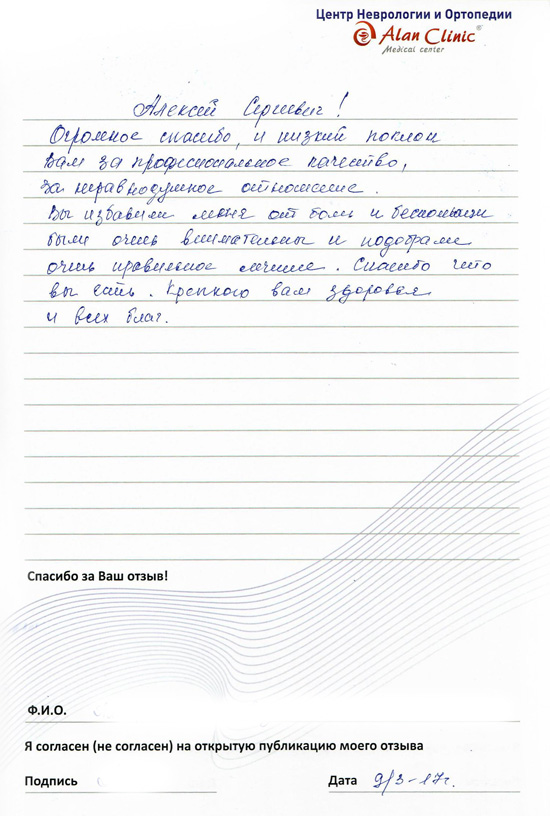 Центр Неврологии и Ортопедии
Alan Clinic
Medical center
Алексей Сергеевич!
Огромное спасибо, и низкий поклон
Вам за профессиональное качество,
за неравнодушное отношение.
Вы избавили меня от боли и
были очень внимательны и подобрали
очень правильное лечение. Спасибо что
вы есть. Крепкого вам здоровья
и всех благ.
Спасибо за Ваш отзыв!
Ф.И.О.
Я согласен (не согласен) на открытую публикацию моего отзыва
Подпись
Дата 9/3-17г.